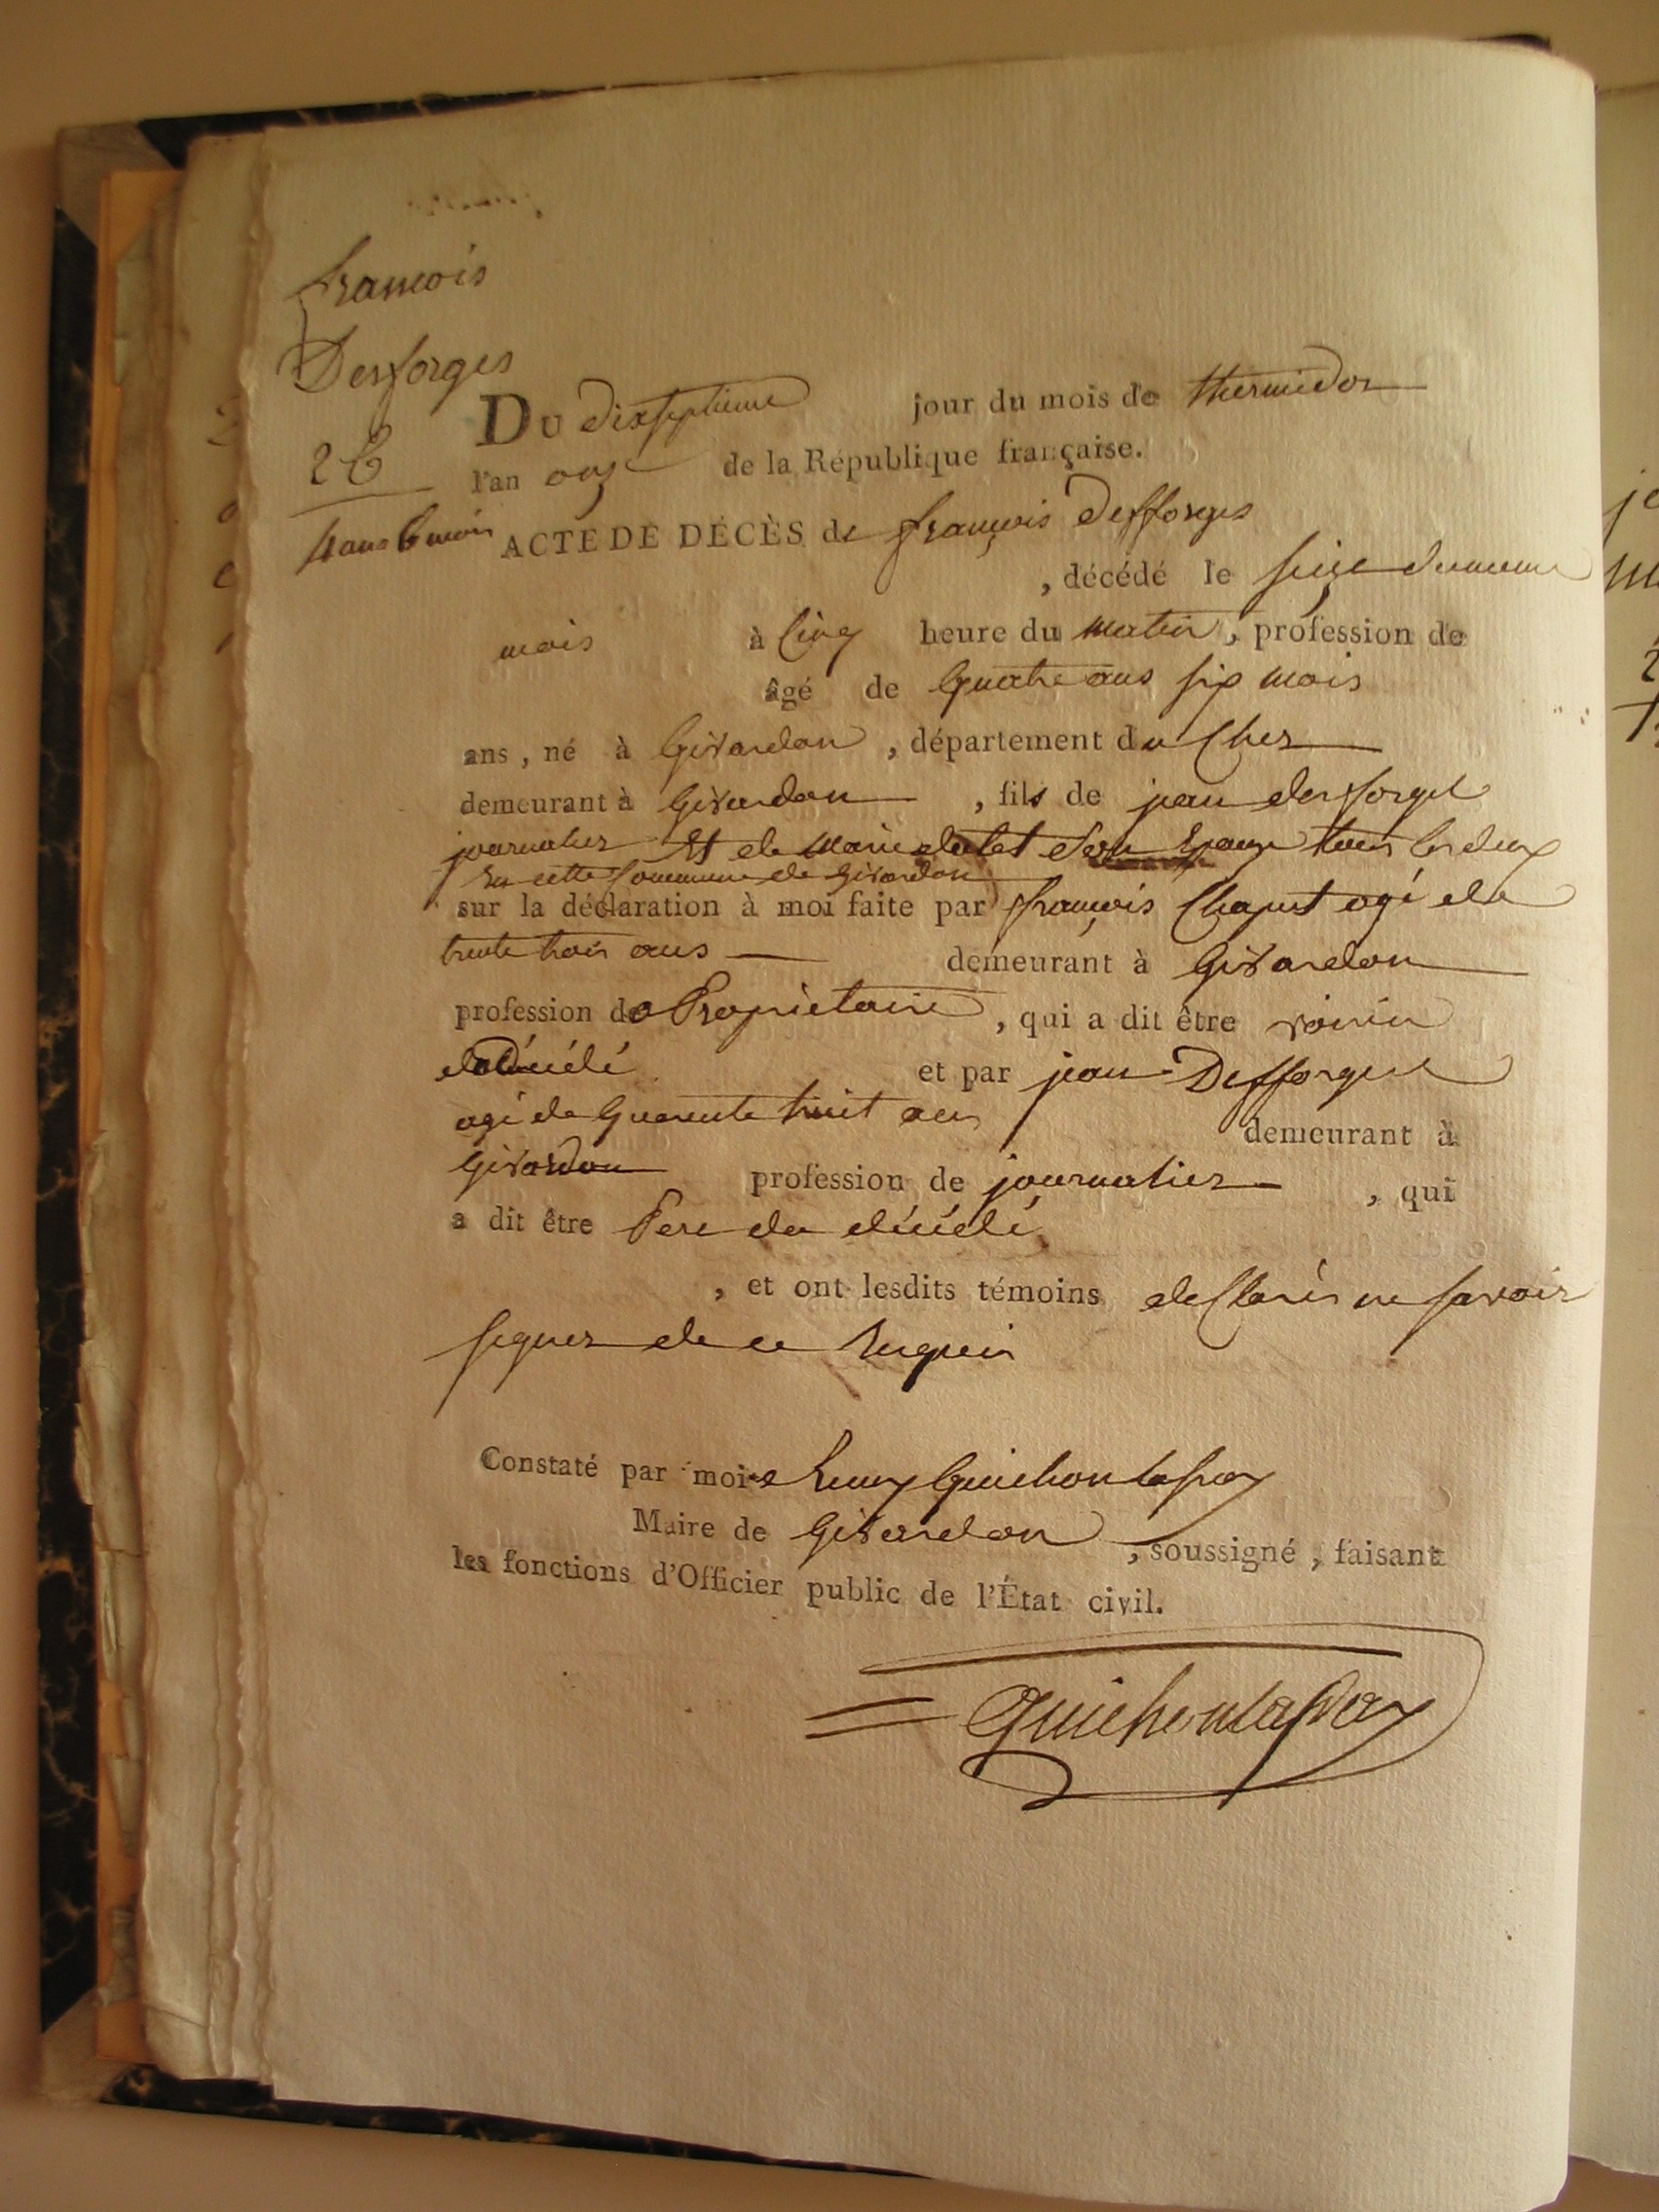 françois
Desforges
26
4 ans 6 mois
Du dixseptieme jour du mois de thermidor
l'an onze de la République française.
ACTE DE DÉCÈS de françois Desforges
, décédé le seize du meme
mois à Cinq heure du matin, profession de
âgé de Quatre ans six mois
ans, né à Givardon, département du Cher
demeurant à Givardon, fils de jean desforges
journalier Et de Marie son Epouze tous les deux
En cette Commune de Givardon
sur la déclaration à moi faite par françois Chaput agé de
trente trois ans demeurant à Givardon
profession de Proprietaire, qui a dit être voisin
du Décédé et par jean Desforges
agé de Quarente huit ans demeurant à
Givardon profession de journalier, qui
a dit être Pere du décédé
, et ont lesdits témoins declarés ne savoir
signer de ce Requis
Constaté par moi Guichon
Maire de Givardon, soussigné, faisant
les fonctions d'Officier public de l'État civil.